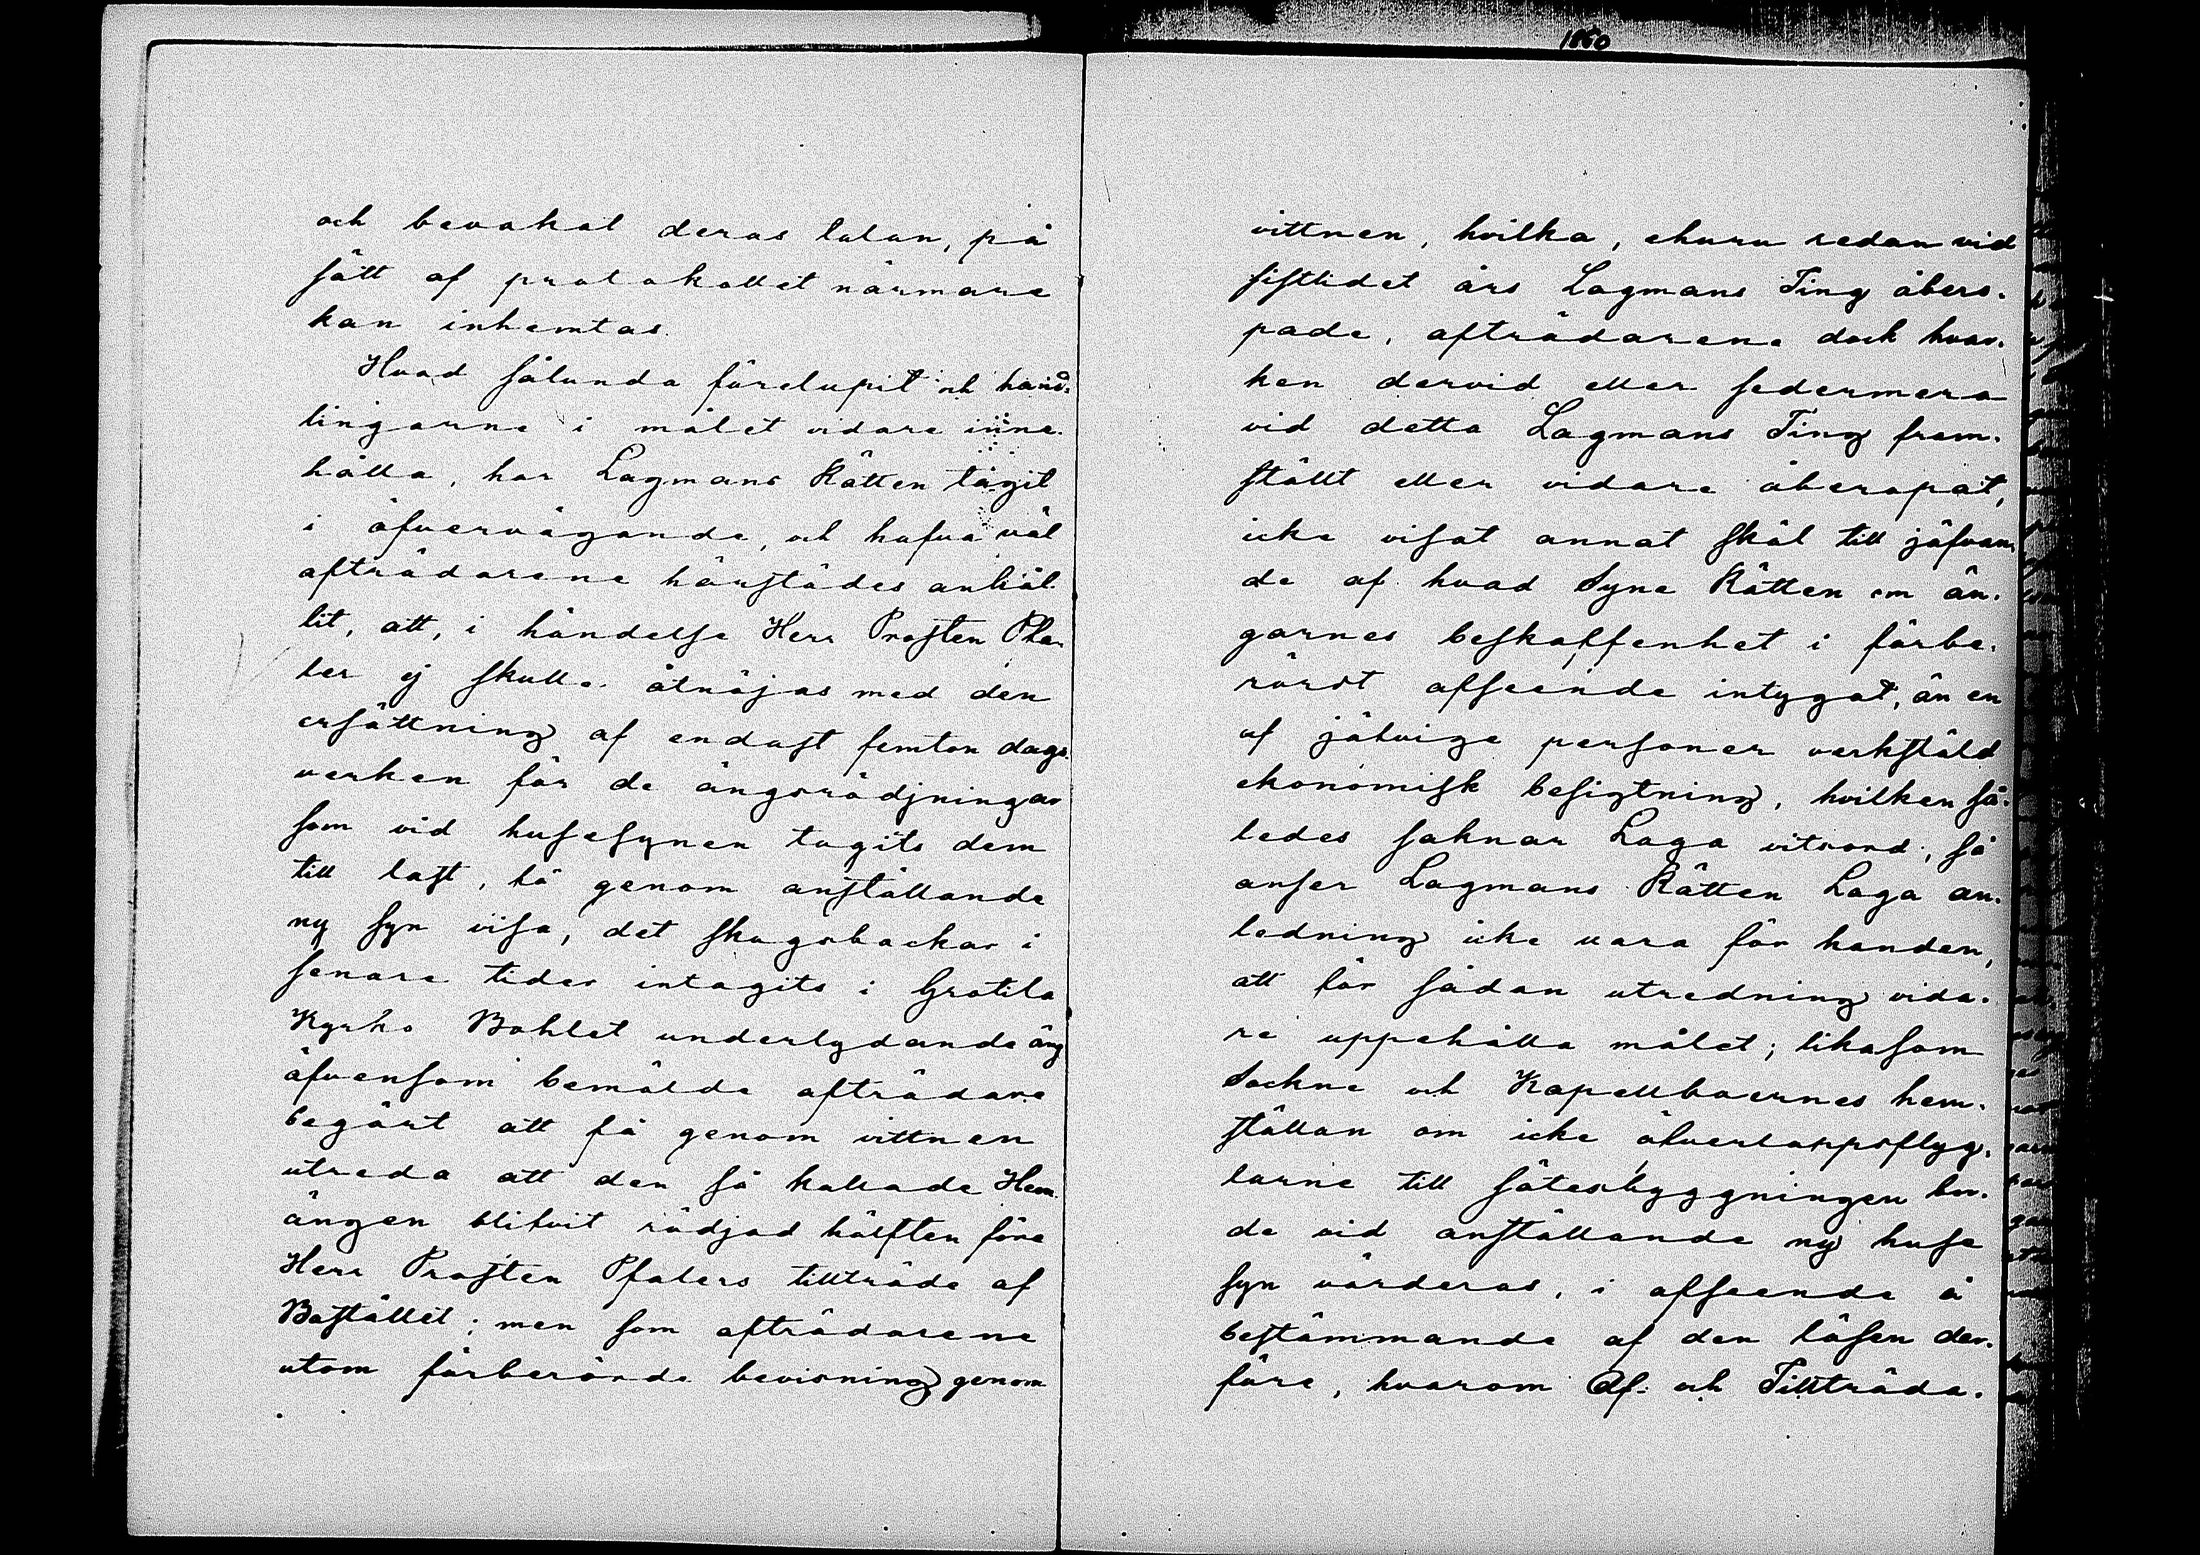 1860
och bevakat deras talan, på
sätt af protokollet närmare
kan inhemtas.
Hvad sålunda förelupit och hand-
lingarne i målet vidare inne-
hålla, har Lagmans Rätten tagit
i öfvervägande, och hafva väl
afträdarene härstädes anhål-
lit, att, i händelse Herr Prosten Pha-
ler ej skulle åtnöjas med den
ersättning af endast femton dags-
verken för de ängsrödjningar
som vid husesynen tagits dem
till last, få genom anställande
ny syn visa, det skogsbackar i
senare tider intagits i Gratila
Kyrko Bohlet underlydande äng
äfvensom bemälde afträdare
begärt att få genom vittnen
utreda att den så kallade Hem-
ängen blifvit rödjad hälften före
Herr Prosten Pfalers tillträde af
Bostället; men som afträdarene
utom förberörde bevisning genom
vittnen, hvilka, ehuru redan vid
sistlidet års Lagmans Ting åbero-
pade, afträdarene dock hvar-
ken dervid eller sedermera
vid detta Lagmans Ting fram-
ställt eller vidare åberopat,
icke visat annat skäl till jäfvan-
de af hvad Syne Rätten om än-
garnes beskaffenhet i förbe-
rördt afseende intygat, än en
af jäfvige personer verkstäld
ekonomisk besigtning, hvilken så-
ledes saknar Laga vitsord, så
anser Lagmans Rätten Laga an-
ledning icke vara för handen,
att för sådan utredning vida-
re uppehålla målet; likasom
Sockne och Kapellboernes hem-
ställan om icke öfverloppsflyg-
larne till sätesbyggningen bor-
de vid anställande ny huse
syn värderas, i afseende å
bestämmande af den lösen der-
före, hvarom Af- och Tillträda-